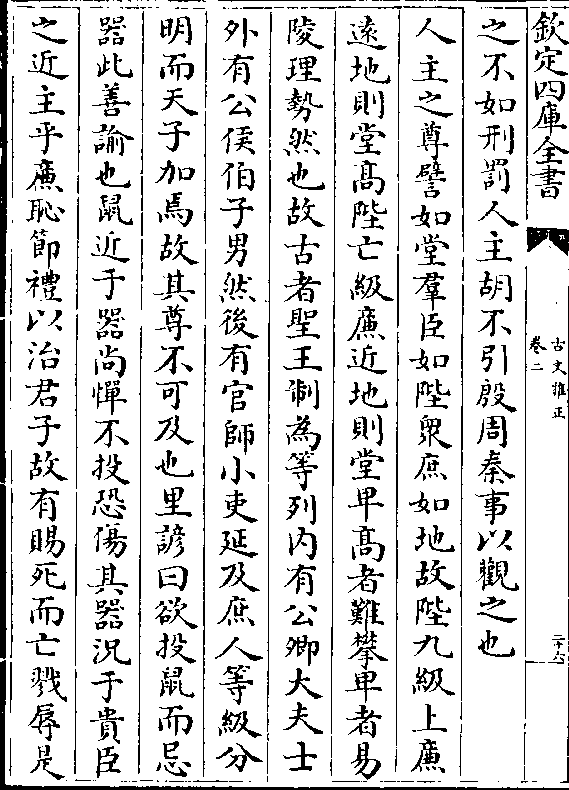 欽定四庫全書
古文雅正
卷二
二十六
之不如刑罰人主胡不引殷周秦事以觀之也
人主之尊譬如堂羣臣如陛衆庶如地故陛九級上廉
遠地則堂髙陛亡級廉近地則堂卑髙者難攀卑者易
陵理勢然也故古者聖王制為等列内有公卿大夫士
外有公侯伯子男然後有官師小吏延及庶人等級分
明而天子加焉故其尊不可及也里諺曰欲投鼠而忌
器此善諭也鼠近于器尚憚不投恐傷其器況于貴臣
之近主乎廉恥節禮以治君子故有賜死而亡戮辱是